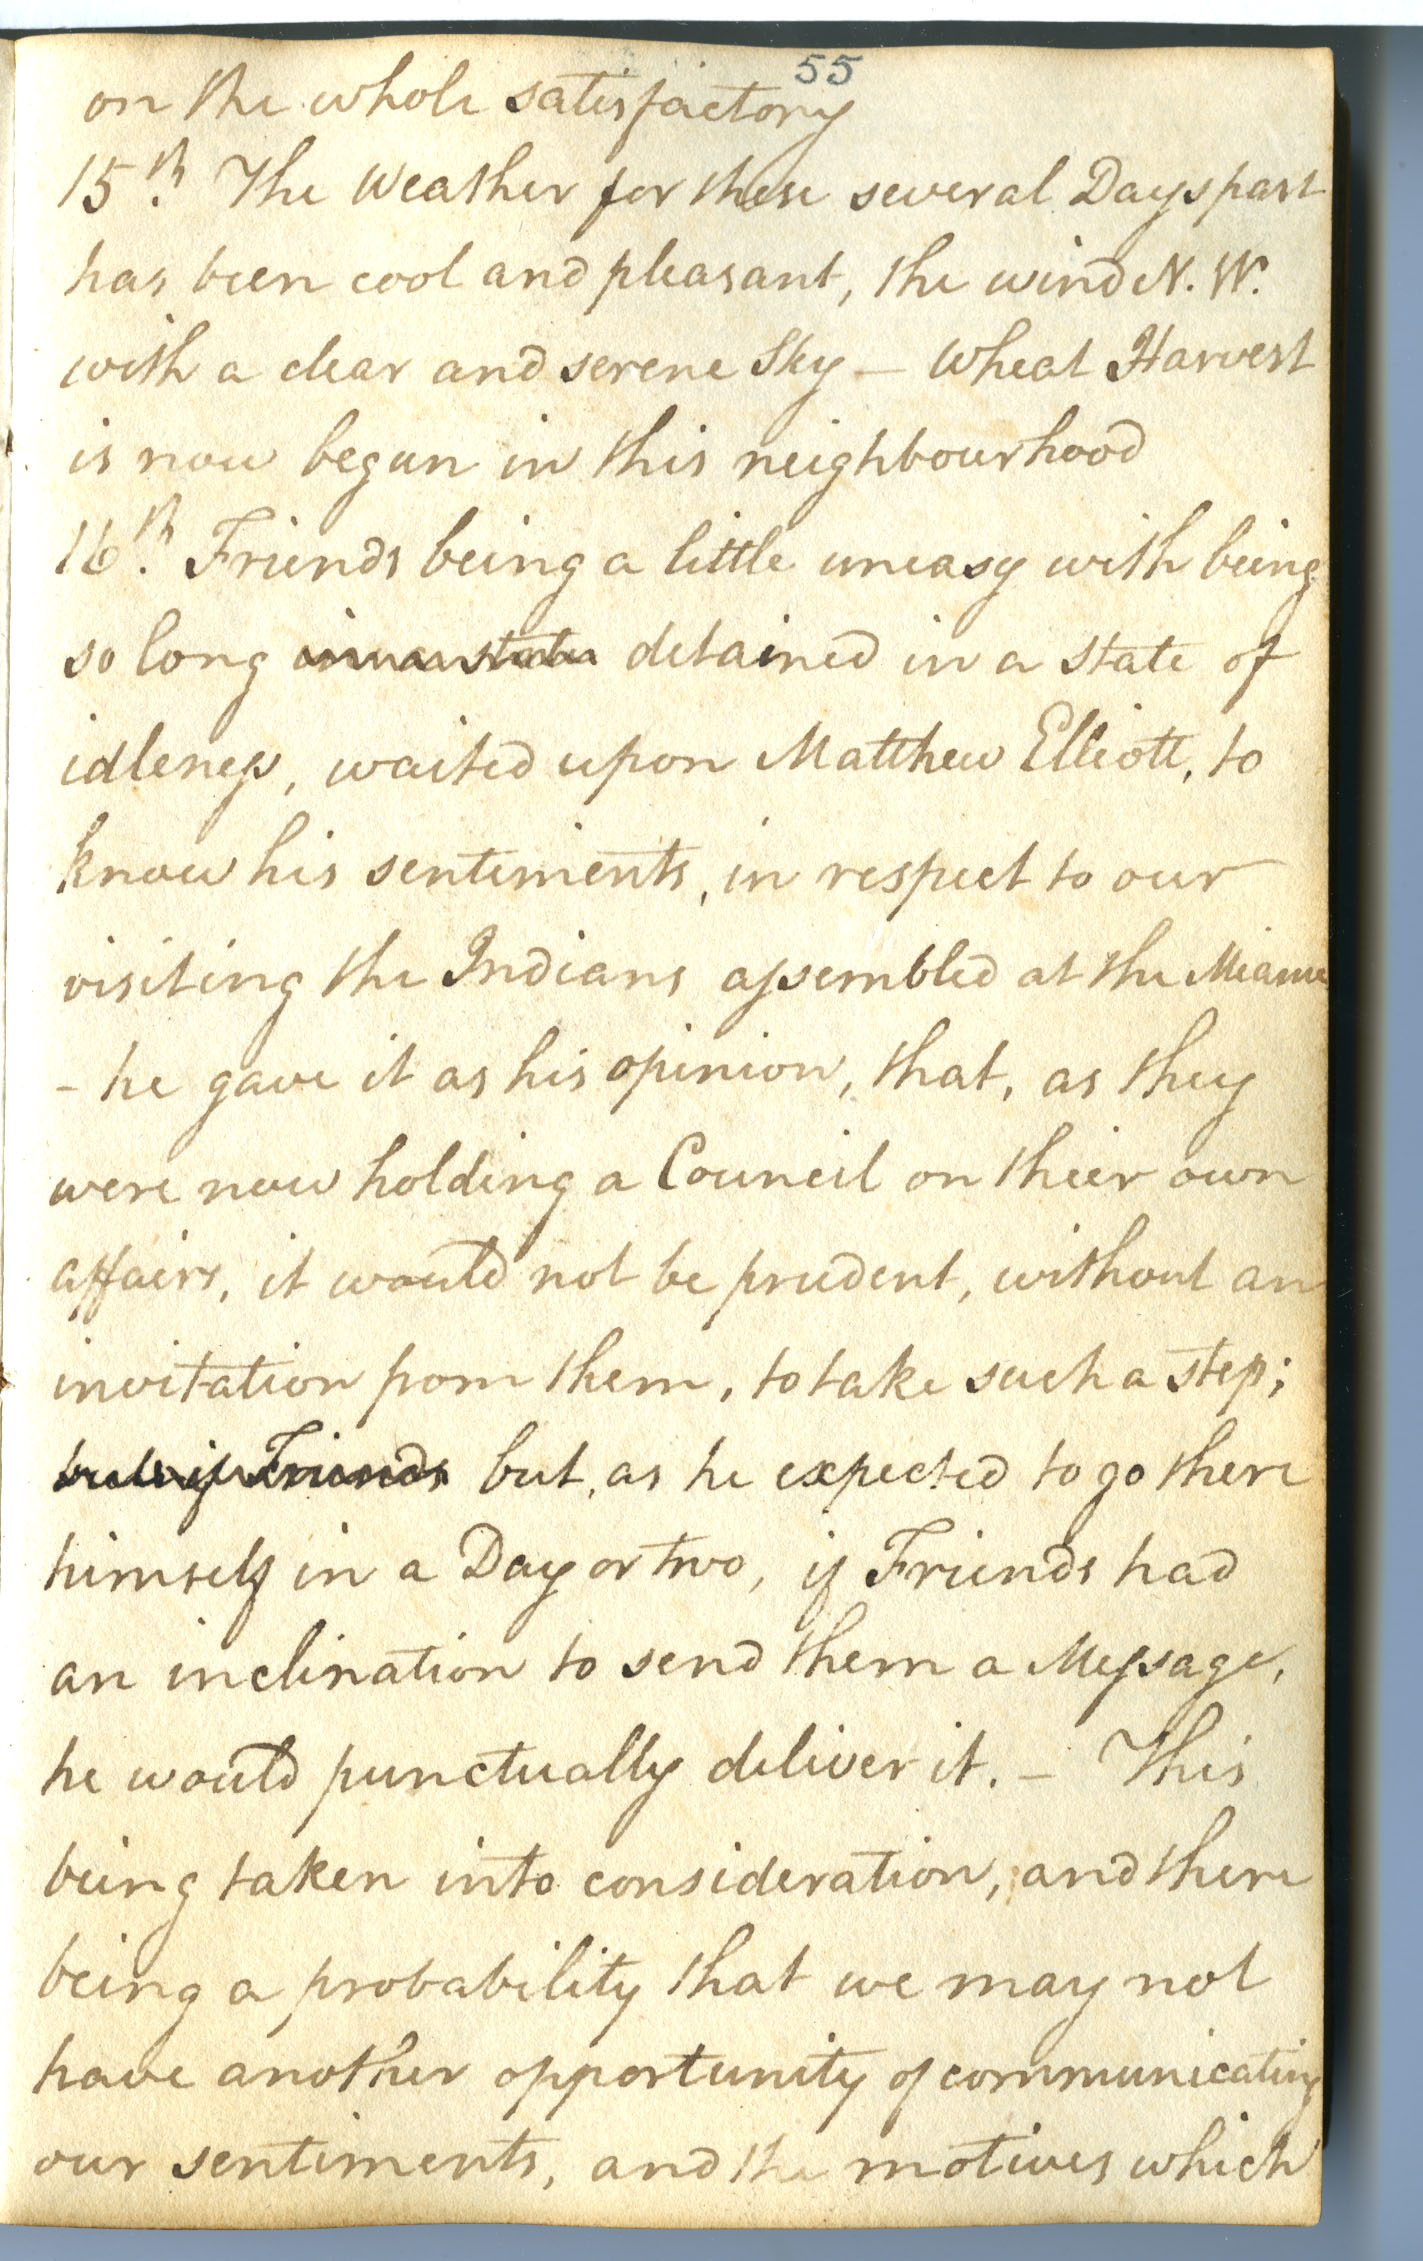 55
on the whole satisfactory
15th. The Weather for these several Days past
has been cool and pleasant, the wind N. W.
with a clear and serene Sky – Wheat Harvest
is now began in this neighbourhood
16th. Friends being a little uneasy with being
so long in a state detained in a state of
idleness, waited upon Matthew Elliott, to
know his sentiments, in respect to our
visiting the Indians assembled at the Miami
- he gave it as his opinion, that, as they
were now holding a Council on thier own
affairs, it would not be prudent, without an
invitation from them, to take such a step;
but if Friends but, as he expected to go there
himself in a Day or two, if Friends had
an inclination to send them a Message,
he would punctually deliver it. – This
being taken into consideration, and there
being a probability that we may not
have another opportunity of communicating
our sentiments, and the motives which